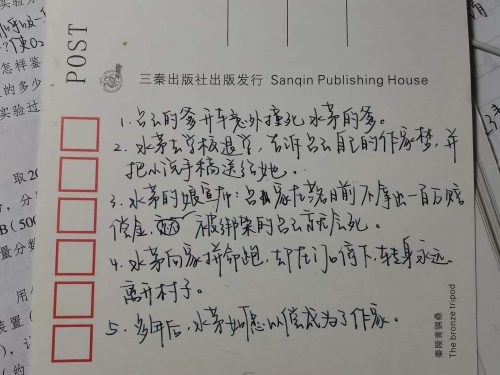 POST
三秦出版社出版发行 Sanqin Publishing House
1. 吕云的爹开车意外撞死水茅的爹。
2. 水茅去学校退学，告诉吕云自己的作家梦，并
把小说手稿送给她。
3. 水茅的娘宣布：吕家在落日前不拿出一百万赔
偿金，被绑架的吕云就会死。
4. 水茅向家拼命跑，却在门口停下，转身永远
离开村子。
5. 多年后，水茅如愿以偿成为了作家。
秦陵青铜鼎
The bronze tripod
怎样鉴
的多少
实验过
取20
，分
B(500
量分数
用
装置(